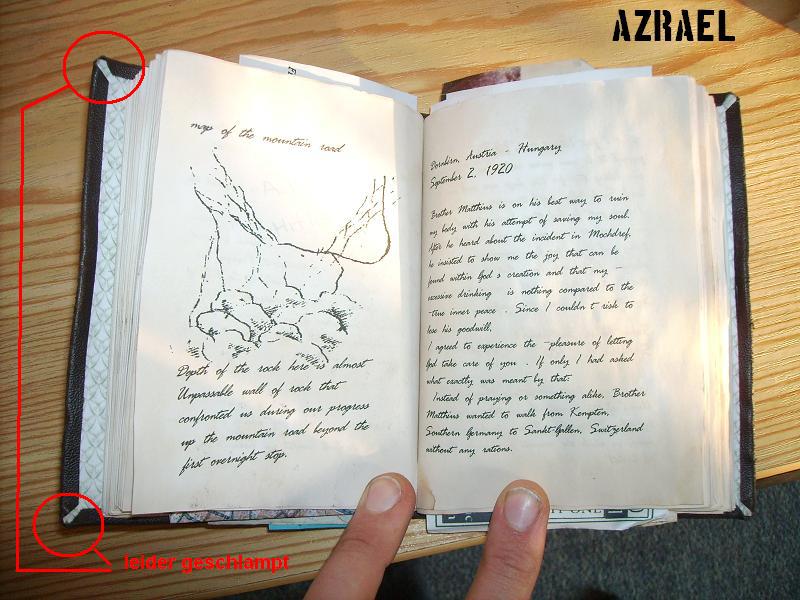 AZRAEL
map of the mountain road
Depth of the rock here is almost
Unpassable wall of rock that
confronted us during our progress
up the mountain road beyond the
first overnight stop.
Dornbirn, Austria - Hungary
September 2, 1920
Brother Matthius is on his best way to ruin
my body with his attempt of saving my soul.
After he heard about the incident in Mochdref,
he insisted to show me the joy that can be
found within God s creation and that my -
excessive drinking is nothing compared to the
-true inner peace . Since I couldn t risk to
lose his goodwill,
I agreed to experience the -pleasure of letting
God take care of you . If only I had asked
what exactly was meant by that:
Instead of praying or something alike, Brother
Matthius wanted to walk from Kempten,
Southern Germany to Sankt-Gallen, Switzerland
without any rations.
leider geschlampt